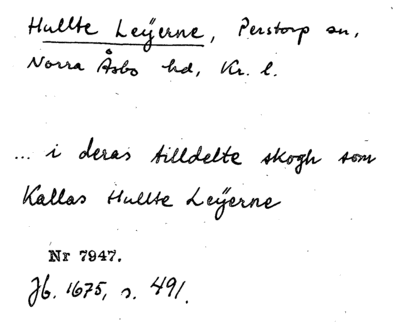 Hullte Leÿerne, Perstorp sn,
Norra Åsbo hd, Kr. l.
... i deras tilldelte skogh som
Kallas Hullte Leÿerne
Nr 7947.
Jb. 1675, s. 491.